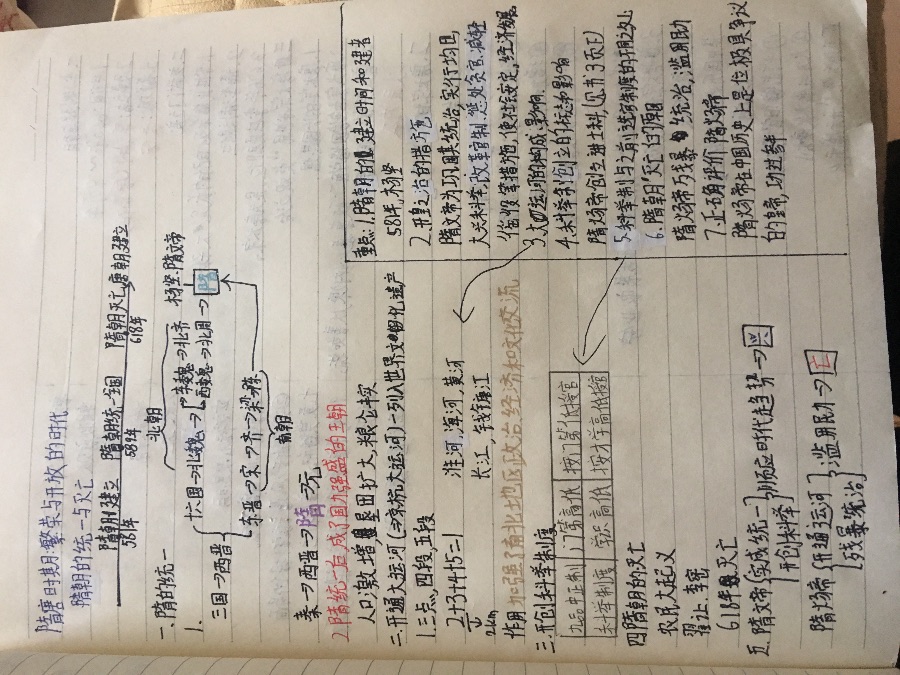 隋唐时期:繁荣与开放的时代
隋朝的统一与灭亡
隋朝建立 隋朝统一全国 隋朝灭亡,唐朝建立
581年 589年 618年
一.隋的统一
1.
北朝
十六国→北魏→东魏→北齐
西魏→北周→隋
杨坚:隋文帝
三国→西晋
东晋→宋→齐→梁→陈
南朝
秦→西晋→隋→元
2.隋统一后,成了国力强盛的王朝
人口激增,垦田扩大,粮仓丰实
二.开通大运河(京杭大运河)→列入世界文物化遗产
1.三点,四段,五段
2+3+4+5=1
淮河,浑河,黄河
长江,钱塘江
作用 加强了南北地区政治,经济和文化交流
三.开创科举制度
九品中正制 门第高低 按门第低授官
科举制度 学识高低 按学高低授官
四隋朝的灭亡
农民大起义
翟让,李密
618年灭亡
五.隋文帝{实成统一
开创科举}顺应时代趋势→兴
隋炀帝{开通运河
残暴统治}滥用民力→亡
重点:1.隋朝的建立时间和建者
581年,杨坚
2.开皇之治的措施
隋文帝为巩固其统治,实行均田,
大兴科举,改革官制,惩处贪官,减轻
徭役等措施,使社会安定,经济发展.
3.大运河的构成,影响.
4.科举制创立的标志和影响
隋炀帝创立进士科,(见书3页下)
5.科举制与之前选官制度的不同之处
6.隋朝灭亡的原因
隋炀帝残暴统治,滥用民力
7.正确评价隋炀帝
隋炀帝在中国历史上是位极具争议
的皇帝,功过参半